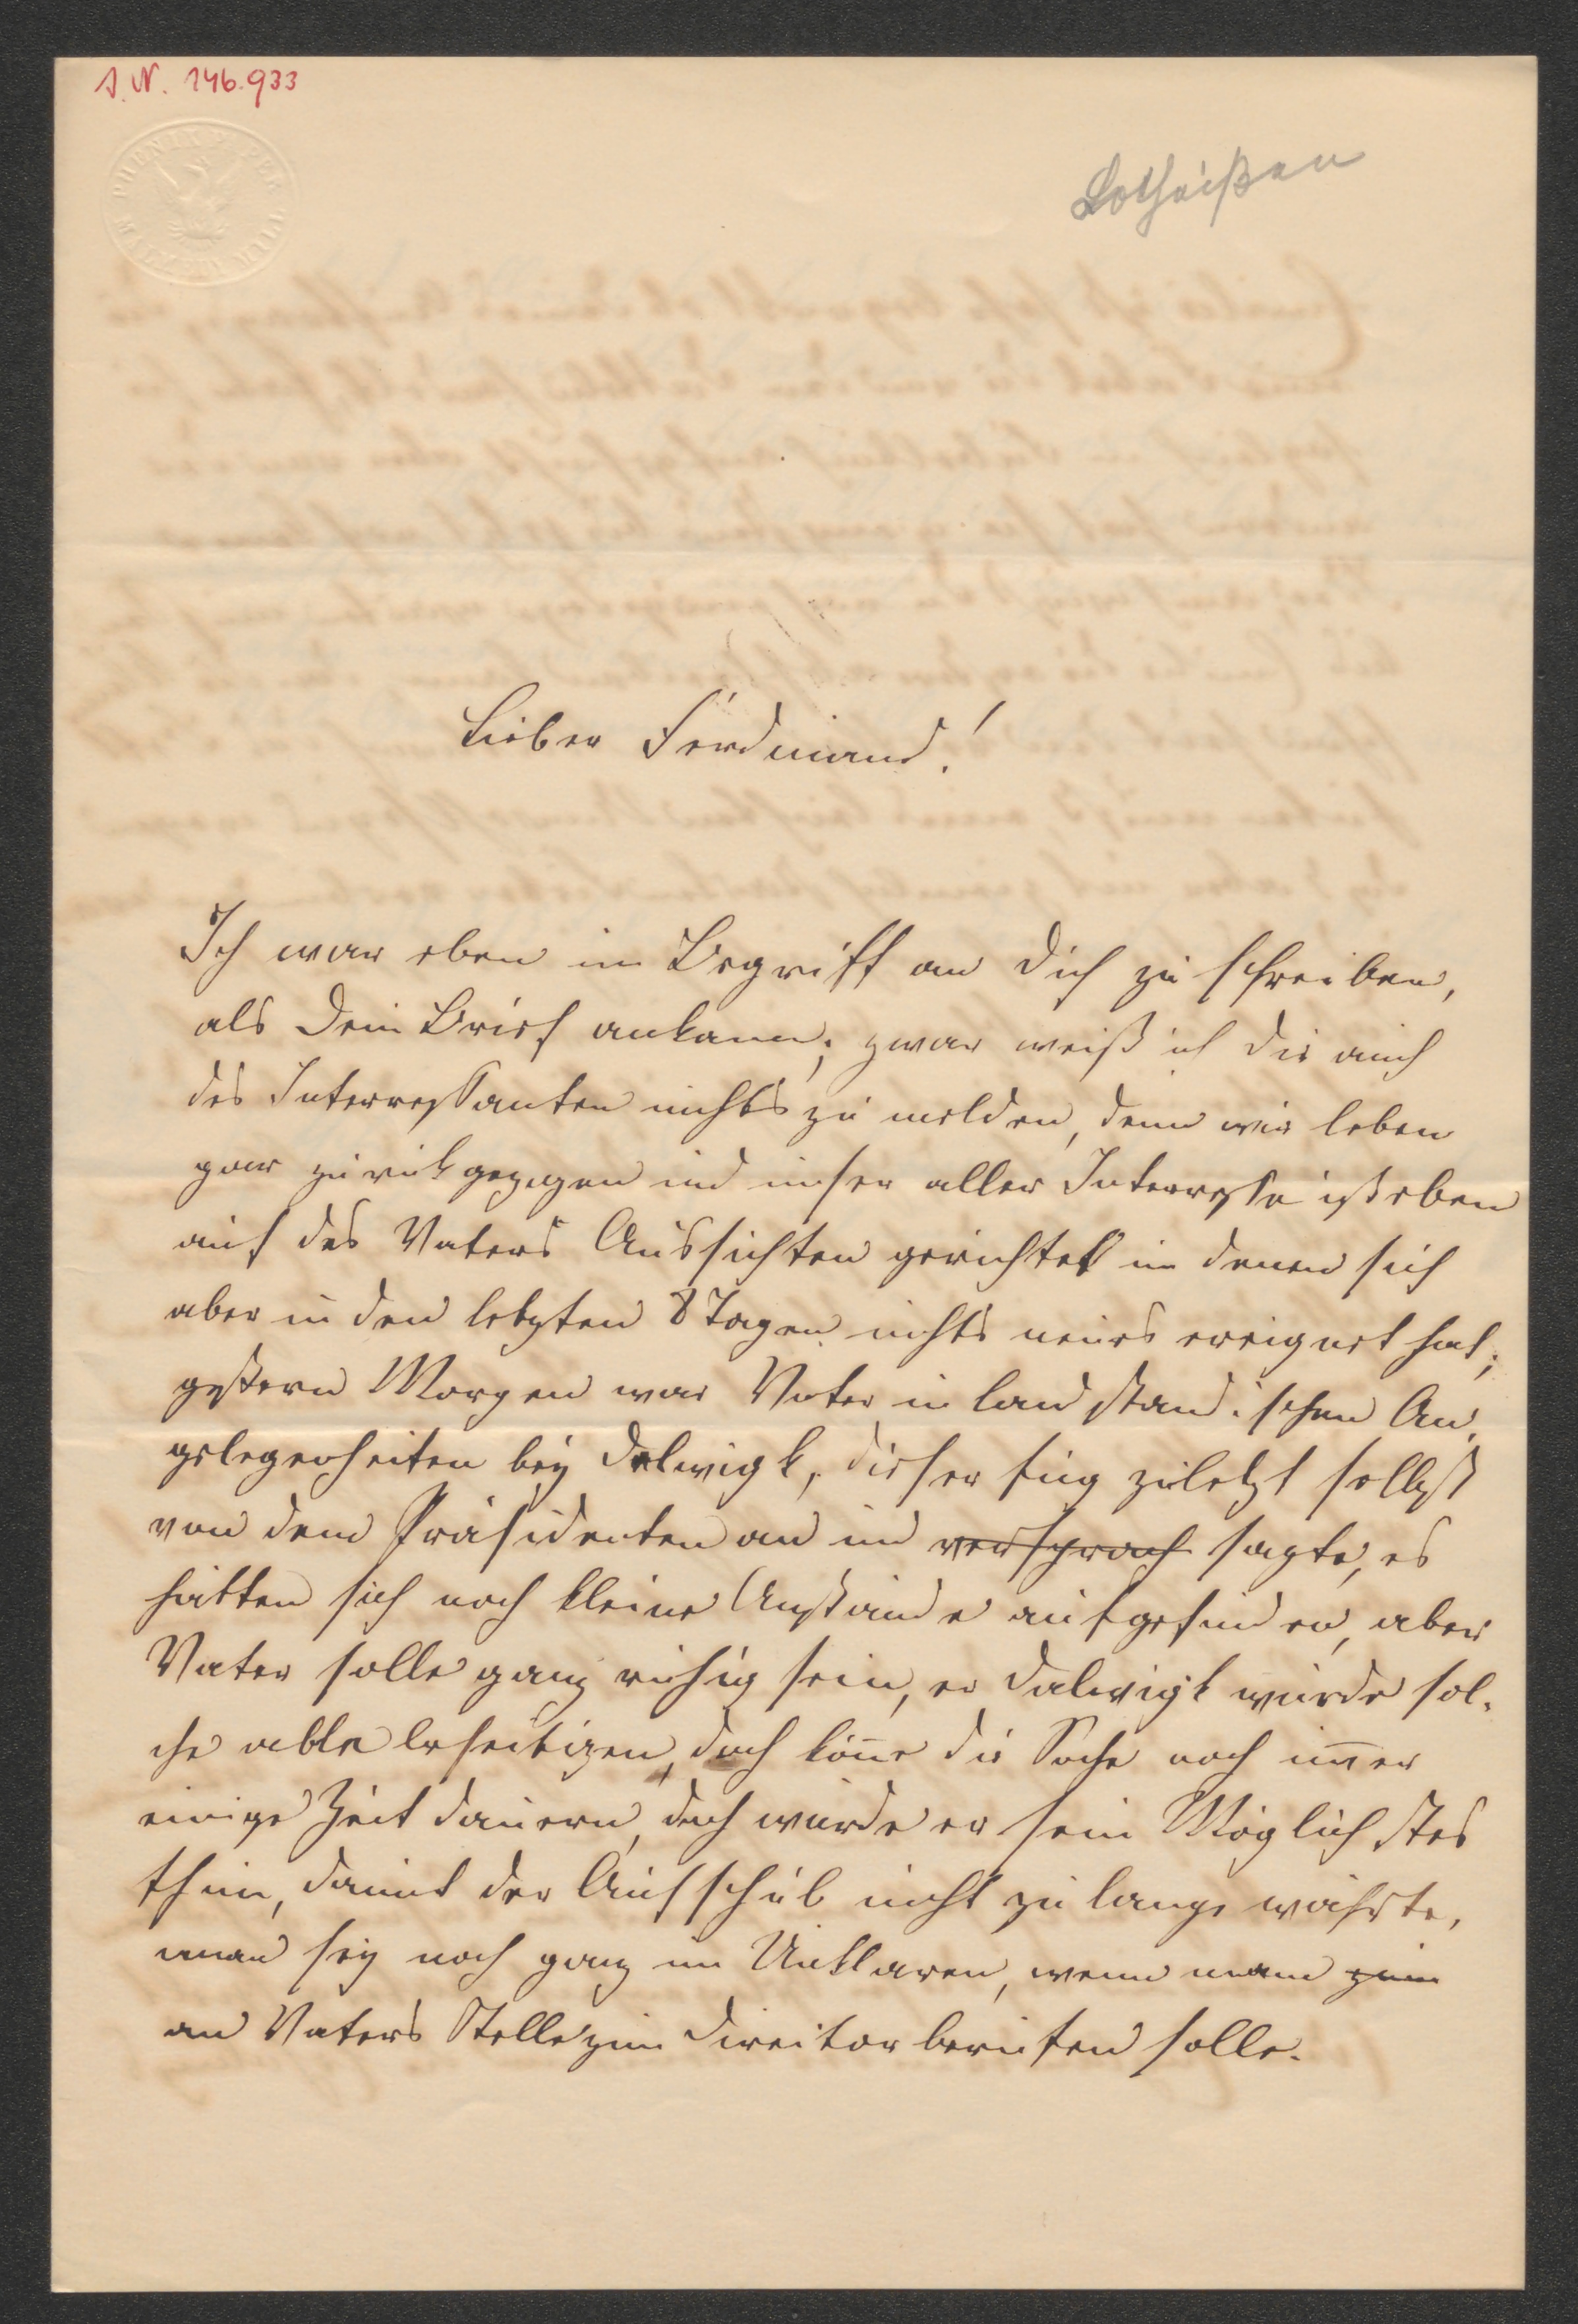 I. N. 146.933
Lotheißen
Lieber Ferdinand!
Ich war eben im Begriff an Dich zu schreiben,
als Dein Brief ankam; zwar weiß ich Dir auch
des Interressanten nichts zu melden, denn wir leben
gar zurükgezogen und unser aller Interresse ist eben
auf des Vaters Aussichten gerichtet in denen sich
aber in den letzten 8 Tagen nichts neues ereignet hat;
gestern Morgen war Vater in landständischen An,
gelegenheiten bey Dalwigk, dieser fing zuletzt selbst
von dem Präsidenten an und versprach sagte, es
hätten sich noch kleine Anstände aufgefunden, aber
Vater solle ganz ruhig sein, er Dalwigk würde sol,
che alle beseitigen, doch könne die Sache noch immer
einige Zeit dauern, doch würde er sein Möglichstes
thun, damit der Aufschub nicht zu lange währte,
man sey noch ganz im Unklaren, wenn man zum
an Vaters Stelle zum Direitor berufen solle.